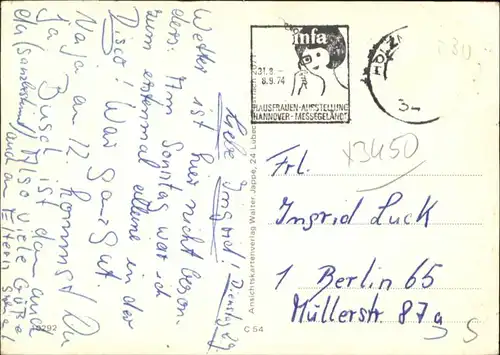 Liebe Ingrid! Dienstag
Wetter ist hier nicht beson-
ders. Am Sonntag war ich
zum erstenmal alleine in der
Disco! War ganz gut
Na ja am 12. kommst Du
ja! Dusch ist dann auch
da Also viele Grüße
auch an Eltern
infa
31.8.–
8.9.74
HAUSFRAUEN-AUSSTELLUNG
HANNOVER - MESSEGELÄNDE
Ansichtskartenverlag Walter Jappe, 24 Lübeck
C 54
292
x3450
Frl.
Ingrid Luck
1 Berlin 65
Müllerstr. 87a
S